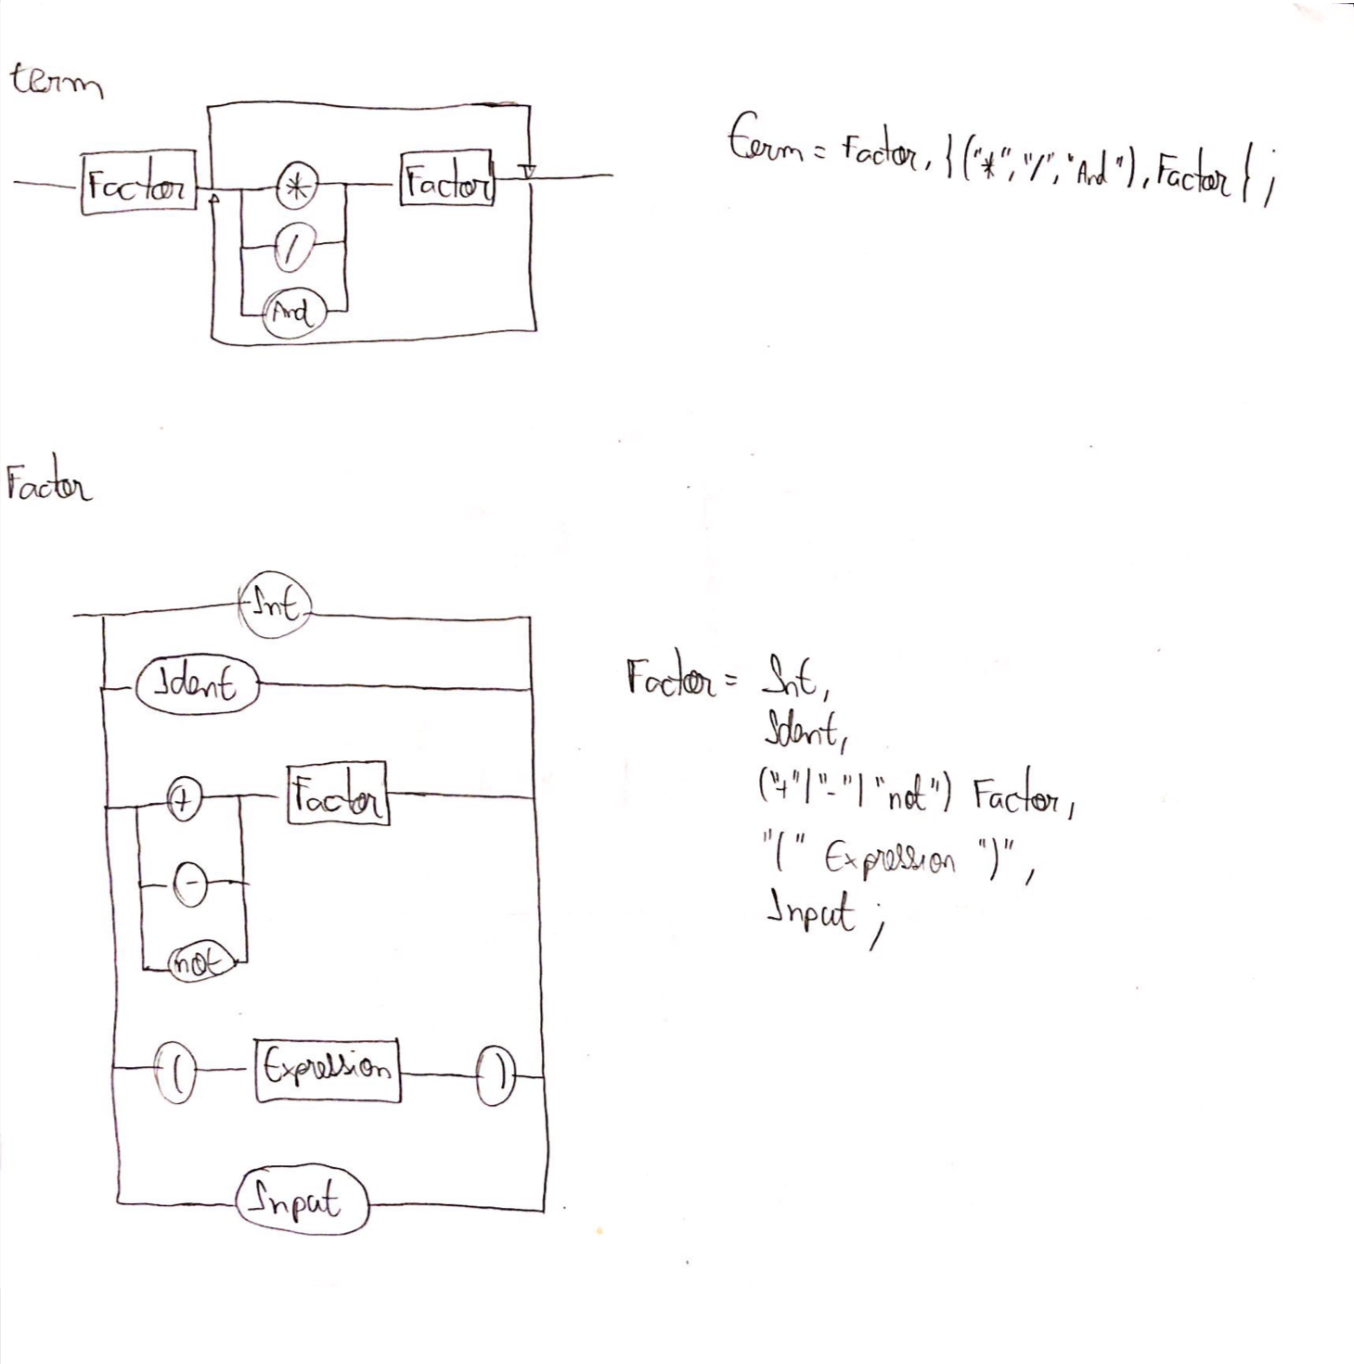 term
Factor * Factor
/
And
term = Factor, {("*", "/", "And"), Factor};
Factor
Int
Ident
+ Factor
-
not
( Expression )
Input
Factor = Int,
Ident,
("+"|"-"|"not") Factor,
"(" Expression ")",
Input;